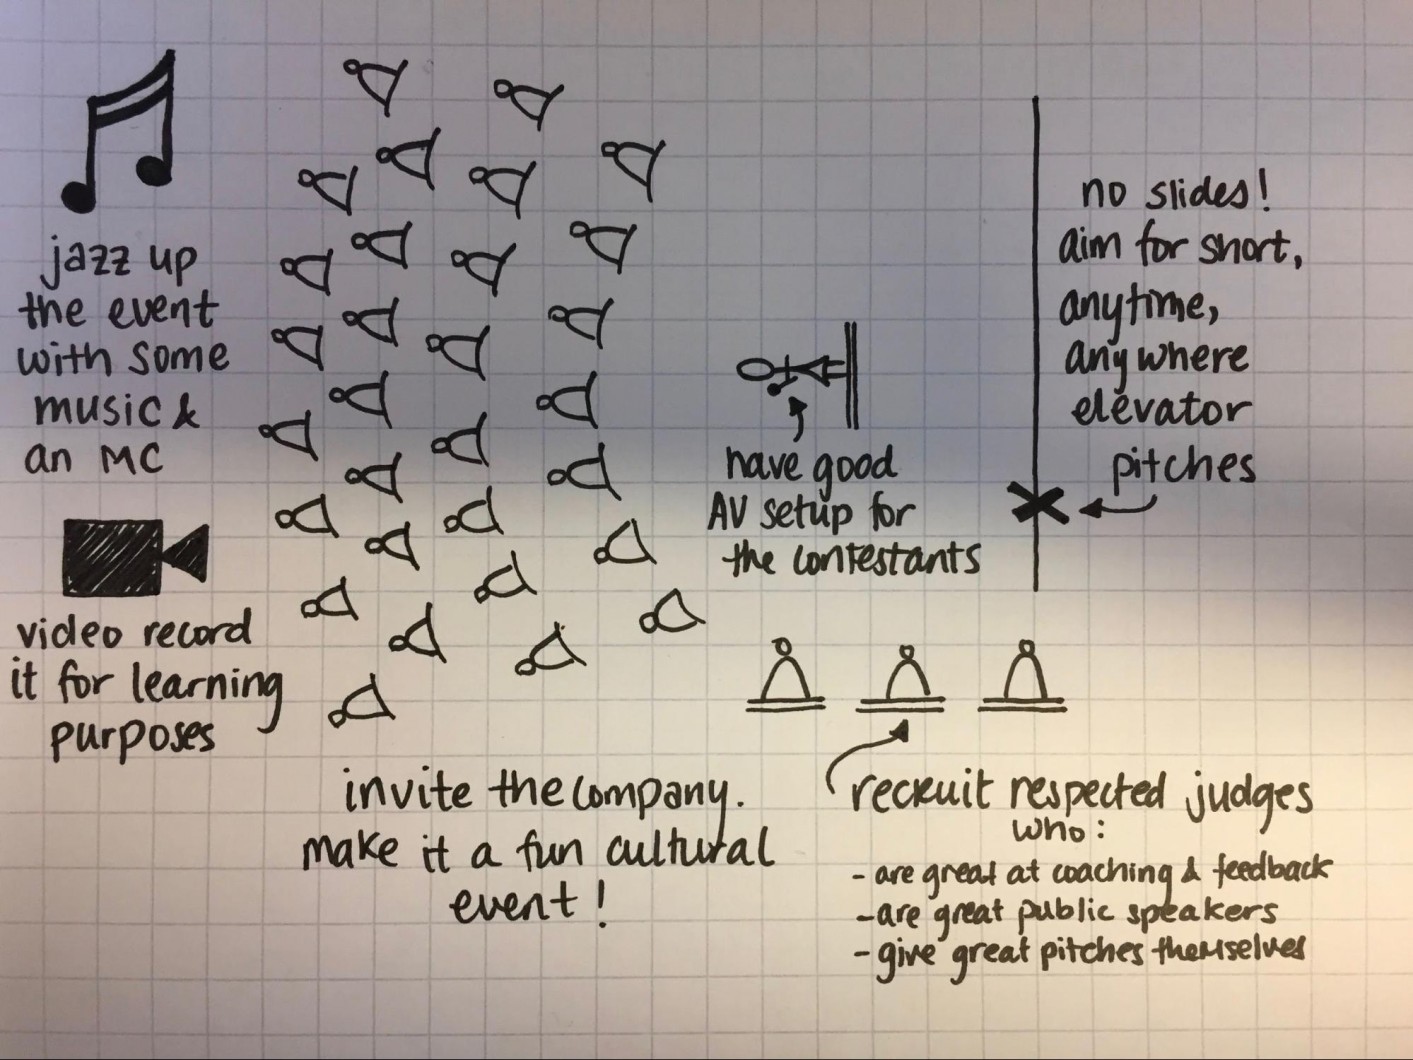 jazz up
the event
with some
music &
an MC
video record
it for learning
purposes
invite the company.
make it a fun cultural
event!
have good
AV setup for
the contestants
no slides!
aim for short,
anytime,
anywhere
elevator
pitches
recruit respected judges
who:
- are great at coaching & feedback
- are great public speakers
- give great pitches themselves